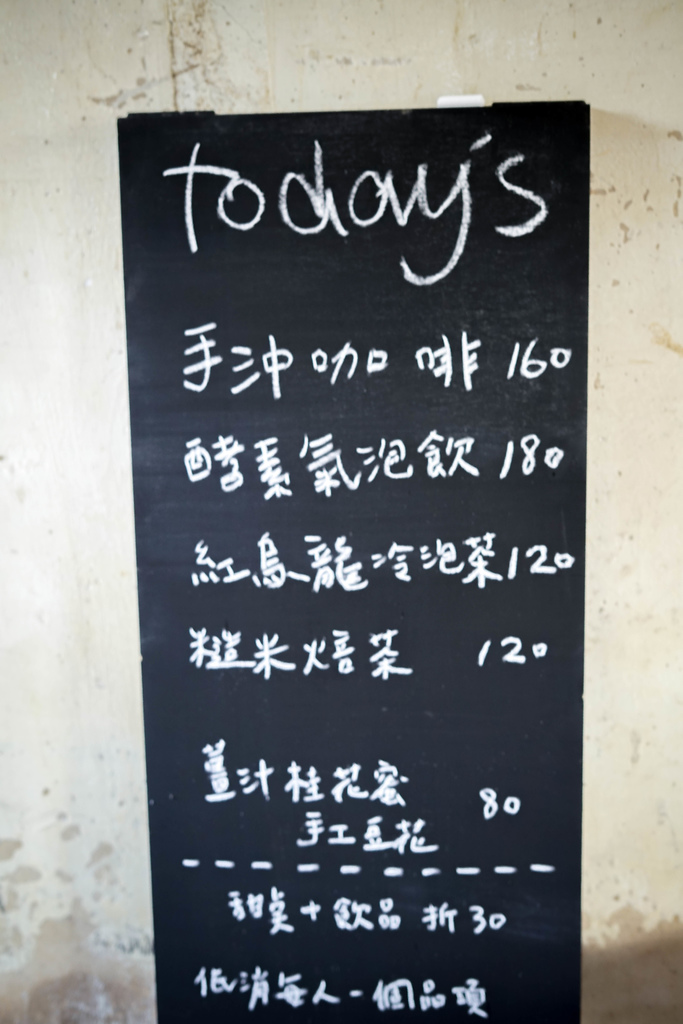 today's
手沖咖啡 160
酵素氣泡飲 180
紅烏龍冷泡茶 120
糙米焙茶 120
薑汁桂花蜜 80
手工豆花
甜点+飲品 折30
低消每人一個品項